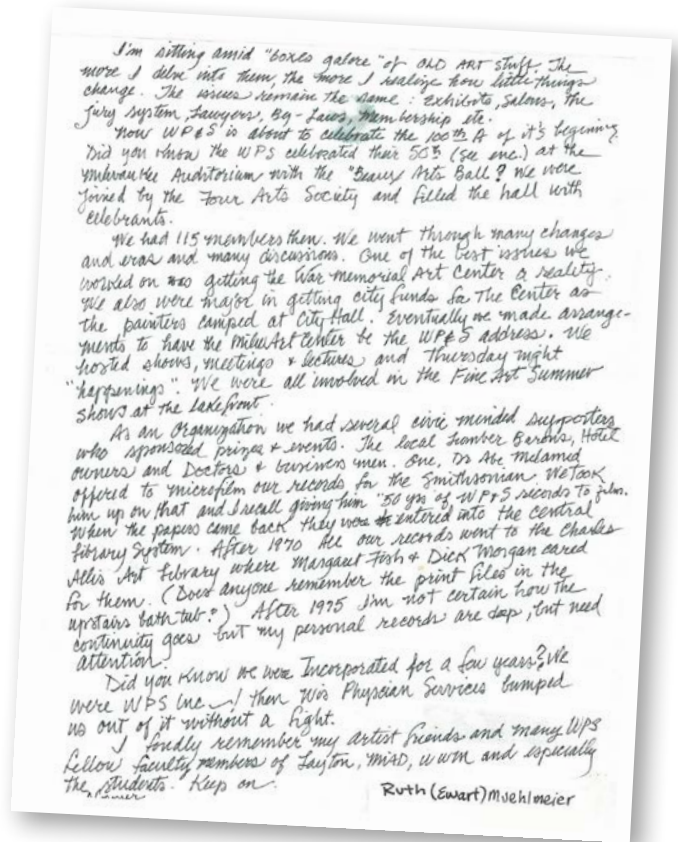 I'm sitting amid "boxes galore" of OLD ART stuff. The
more I delve into them, the more I realize how little things
change. The issues remain the same: exhibits, salons, the
jury system, Lawyers, By-Laws, Membership etc.
Now WP&S is about to celebrate the 100th A of it's begining
Did you know the WPS celebrated their 50th (see enc.) at the
Milwaukee Auditorium with the "Beaux Arts Ball? We were
joined by the Four Arts Society and filled the hall with
celebrants.
We had 115 members then. We went through many changes
and eras and many discussions. One of the best issues we
worked on was getting the War Memorial Art Center a reality.
We also were major in getting city funds for The Center as
the painters camped at City Hall. Eventually we made arrange-
ments to have the Milw Art Center be the WP&S address. We
hosted shows, meetings & lectures and Thursday night
"happenings". We were all involved in the Fine Art Summer
shows at the Lakefront.
As an Organization we had several civic minded supporters
who sponsored prizes & events. The local Lumber Barons, Hotel
owners and Doctors & business men. One, Dr Abe Melamid
offered to microfilm our records for the Smithsonian. We took
him up on that and I recall giving him "50 yrs of WP&S records to film.
When the papers came back they were entered into the Central
Library System. After 1970 all our records went to the Charles
Allis Art Library where Margaret Fish & Dick Morgan cared
for them. (Does anyone remember the print files in the
upstairs bath tub?) After 1975 I'm not certain how the
continuity goes but my personal records are deep, but need
attention.
Did you know we were Incorporated for a few years? We
were WPS Inc.! then Wis Physcian Services bumped
us out of it without a fight.
I fondly remember my artist friends and many WPS
fellow faculty members of Layton, MIAD, UWM and especially
the students. Keep on.
Ruth (Ewart) Muehlmeier